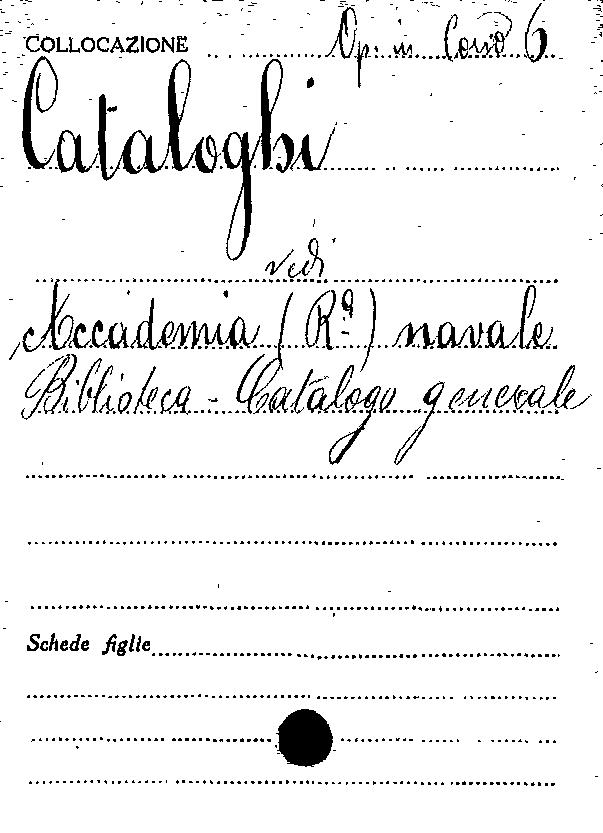 COLLOCAZIONE Op. in Corso 6
Cataloghi
vedi
Accademia (Rª) navale
Biblioteca - Catalogo generale
Schede figlie